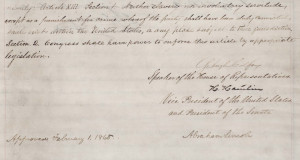 Article XIII. Section 1. Neither slavery nor involuntary servitude,
except as a punishment for crime whereof the party shall have been duly convicted,
shall exist within the United States, or any place subject to their jurisdiction.
Section 2. Congress shall have power to enforce this article by appropriate
legislation.
Schuyler Colfax
Speaker of the House of Representatives
H. Hamlin
Vice President of the United States
and President of the Senate
Approved February 1. 1865.
Abraham Lincoln